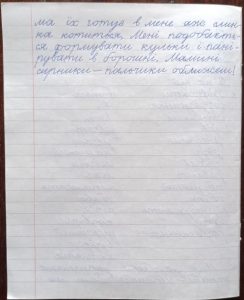 ма їх готує в мене аж слин-
ка котиться. Мені подобаєть-
ся формувати кульки і пані-
рувати в борошні. Мамині
сирники – пальчики оближеш!